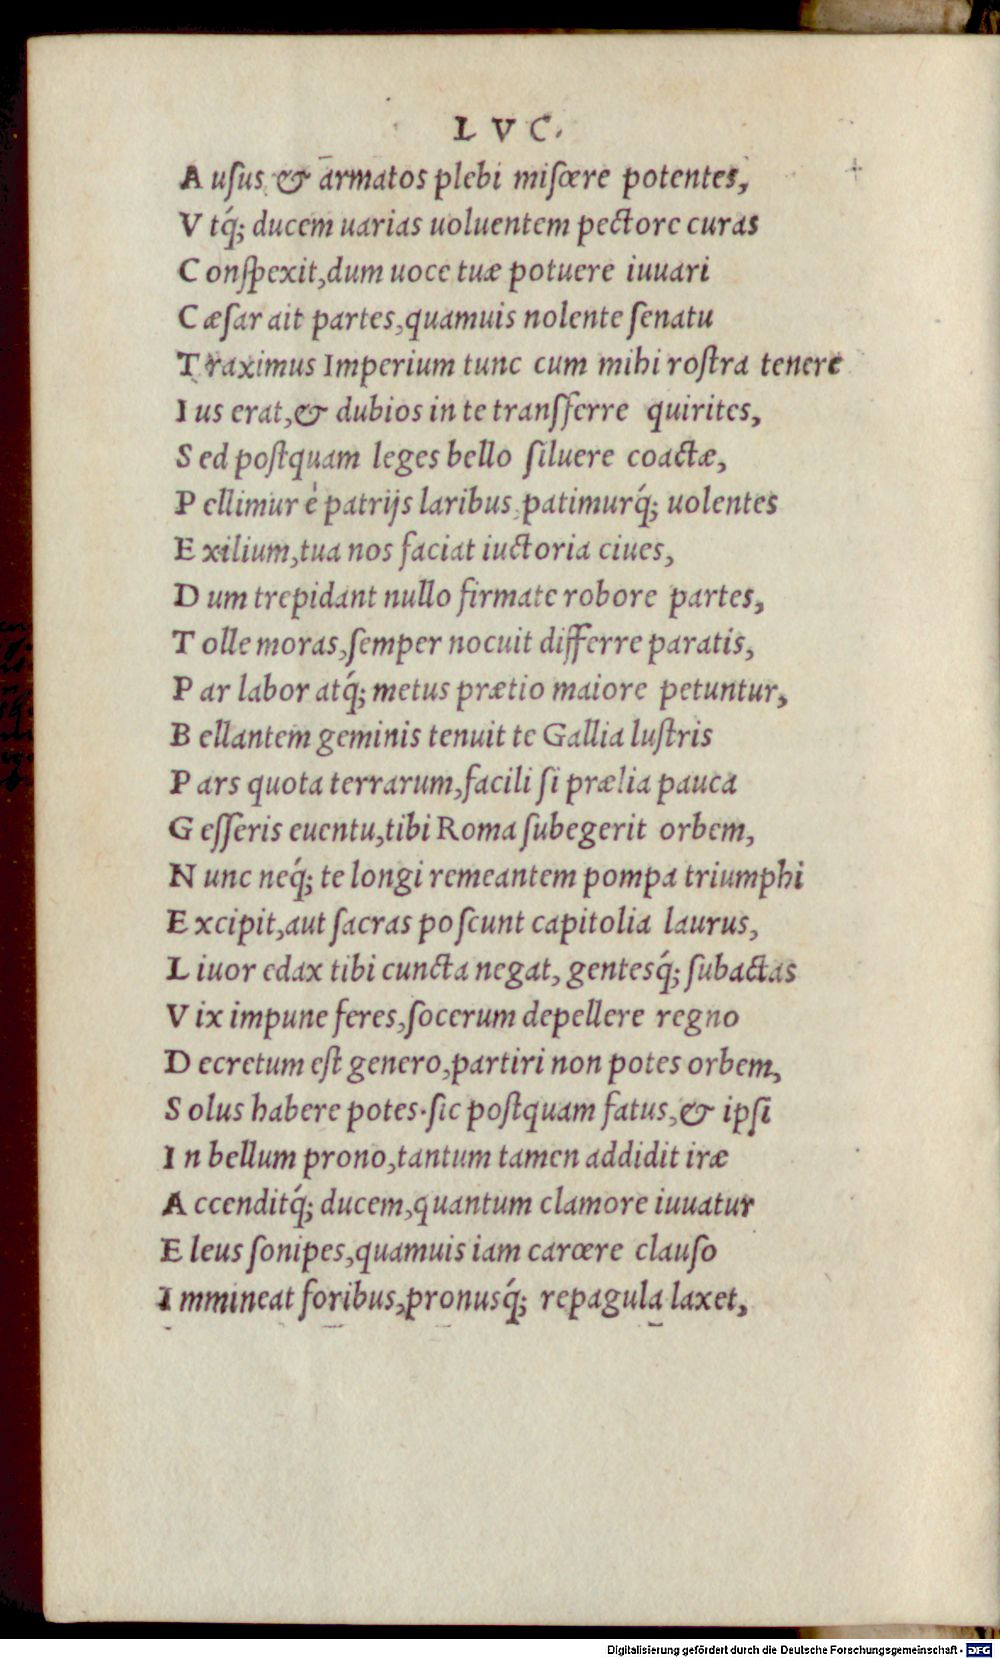 LVC.
A uſus & armatos plebi miſcere potentes,
V tq́; ducem uarias uoluentem pectore curas
C onſpexit,dum uoce tuæ potuere iuuari
C æſar ait partes,quamuis nolente ſenatu
T raximus Imperium tunc cum mihi roſtra tenere
I us erat,& dubios in te tranſferre quirites,
S ed poſtquam leges bello ſiluere coactæ,
P ellimur è patrijs laribus,patimurq́; uolentes
E xilium,tua nos faciat iuctoria ciues,
D um trepidant nullo firmate robore partes,
T olle moras,ſemper nocuit differre paratis,
P ar labor atq́; metus prætio maiore petuntur,
B ellantem geminis tenuit te Gallia luſtris
P ars quota terrarum,facili ſi prælia pauca
G eſſeris euentu,tibi Roma ſubegerit orbem,
N unc neq́; te longi remeantem pompa triumphi
E xcipit,aut ſacras poſcunt capitolia laurus,
L iuor edax tibi cuncta negat, gentesq́; ſubactas
V ix impune feres,ſocerum depellere regno
D ecretum eſt genero,partiri non potes orbem,
S olus habere potes.ſic poſtquam fatus,& ipſi
I n bellum prono,tantum tamen addidit iræ
A ccenditq́; ducem,quantum clamore iuuatur
E leus ſonipes,quamuis iam carcere clauſo
I mmineat foribus,pronusq́; repagula laxet,
Digitalisierung gefördert durch die Deutsche Forschungsgemeinschaft - DFG